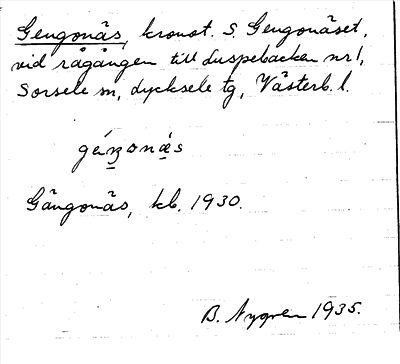 Gengonäs, kronot. S. Gengonäset,
vid rågången till Luspebacken nr 1,
Sorsele sn, Lycksele tg, Västerb. l.
gáŋonæs
Gängonäs, kb. 1930.
B. Nygren 1935.